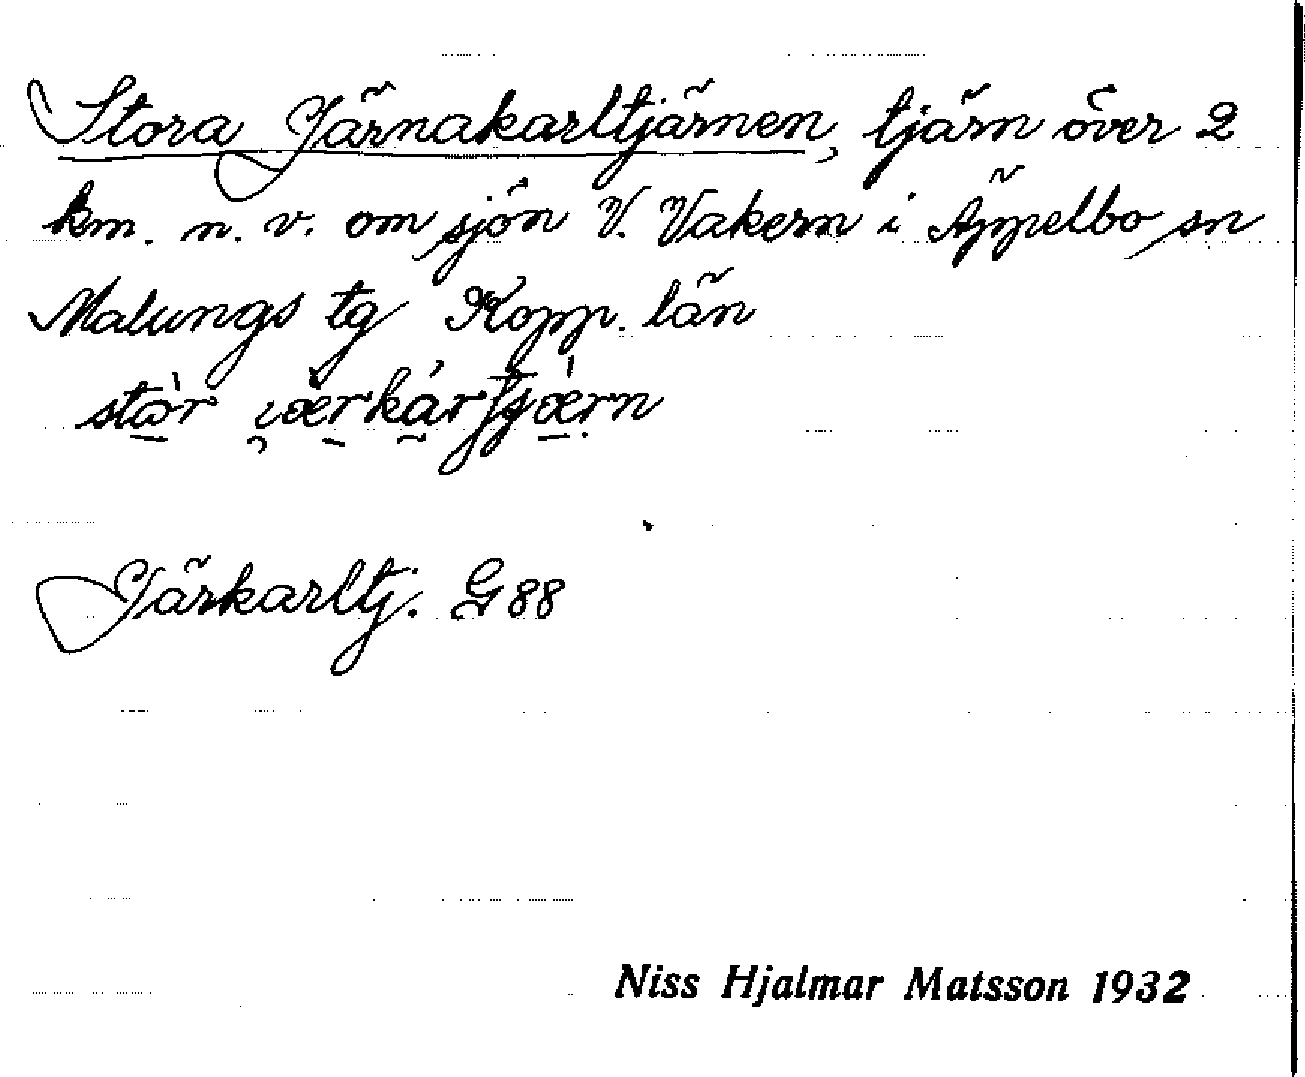 Stora Järnakarltjärnen, tjärn över 2
km. n. v. om sjön V. Vakern i Äppelbo sn
Malungs tg Kopp. län
Järkarltj. G 88
Niss Hjalmar Matsson 1932